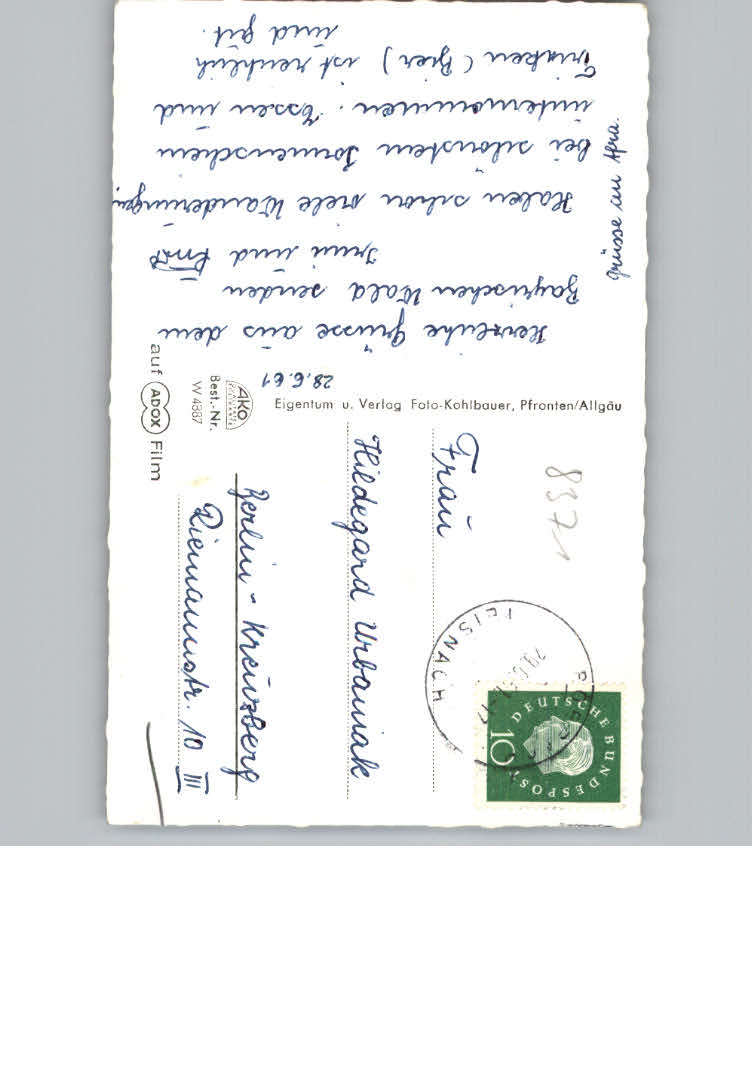 28.6.61
Herzliche Grüsse aus dem
Bayrischen Wald senden
Irmi und Ernst
Haben schon viele Wanderungen
bei schönsten Sonnenschein
unternommen. Essen und
Trinken (Bier) ist reichlich
und gut.
Grüsse an Afra.
Eigentum u. Verlag Foto-Kohlbauer, Pfronten/Allgäu
AKO
Best.-Nr.
W 4387
auf ADOX Film
8371
DEUTSCHE BUNDESPOST
10
TEISNACH
Frau
Hildegard Urbaniak
Berlin - Kreuzberg
Riemannstr. 10 III